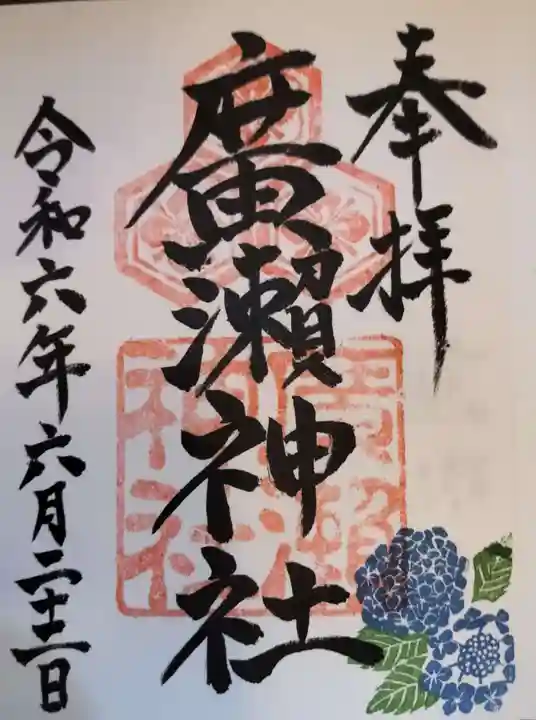 奉拝
廣瀬神社
廣瀬神社
令和六年六月二十二日